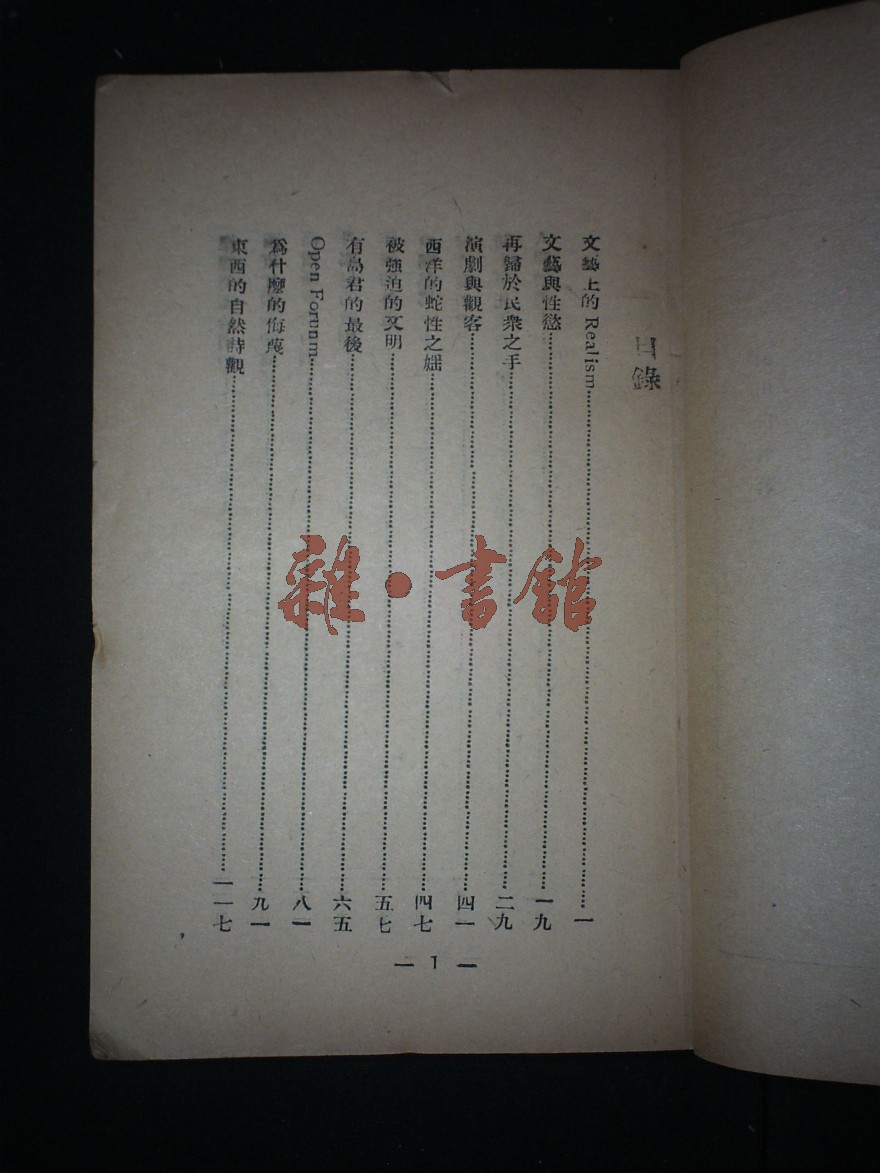 目錄
文藝上的 Realism……一
文藝與性慾……一九
再歸於民衆之手……二九
演劇與觀客……四一
西洋的蛇性之婬……四七
被強迫的文明……五七
有島君的最後……六五
Open Forunm……八一
爲什麼的侮蔑……九一
東西的自然詩觀……一一七
— 1 —
雜·書館